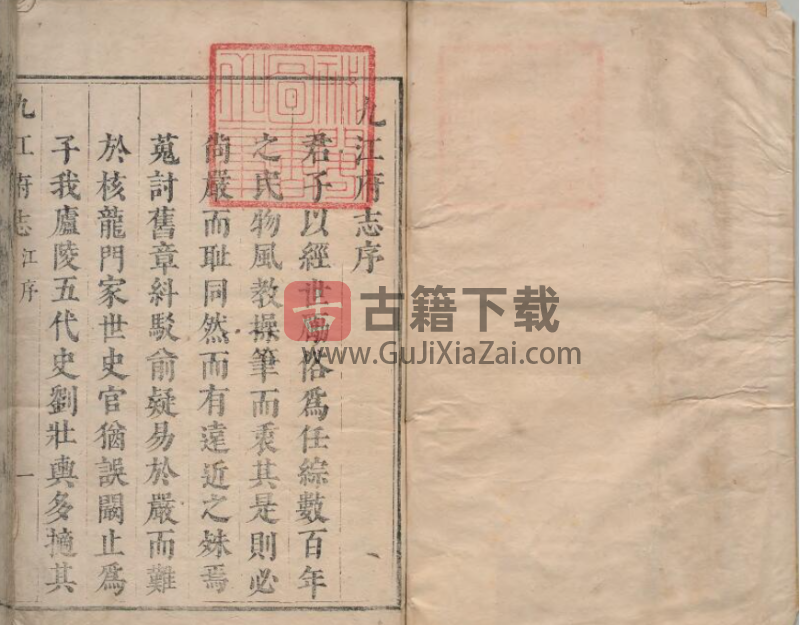 九江府志序
君子以經世勵俗爲任綜數百年
之民物風教操筆而秉其是則必
尚嚴而耻同然而有遠近之殊焉
蒐討舊章糾駁俞疑易於嚴而難
於核龍門家世史官猶誤闕止爲
子我廬陵五代史劉壯輿多擿其
九江府志 江序 一
古籍下载
www.GuJiXiaZai.com